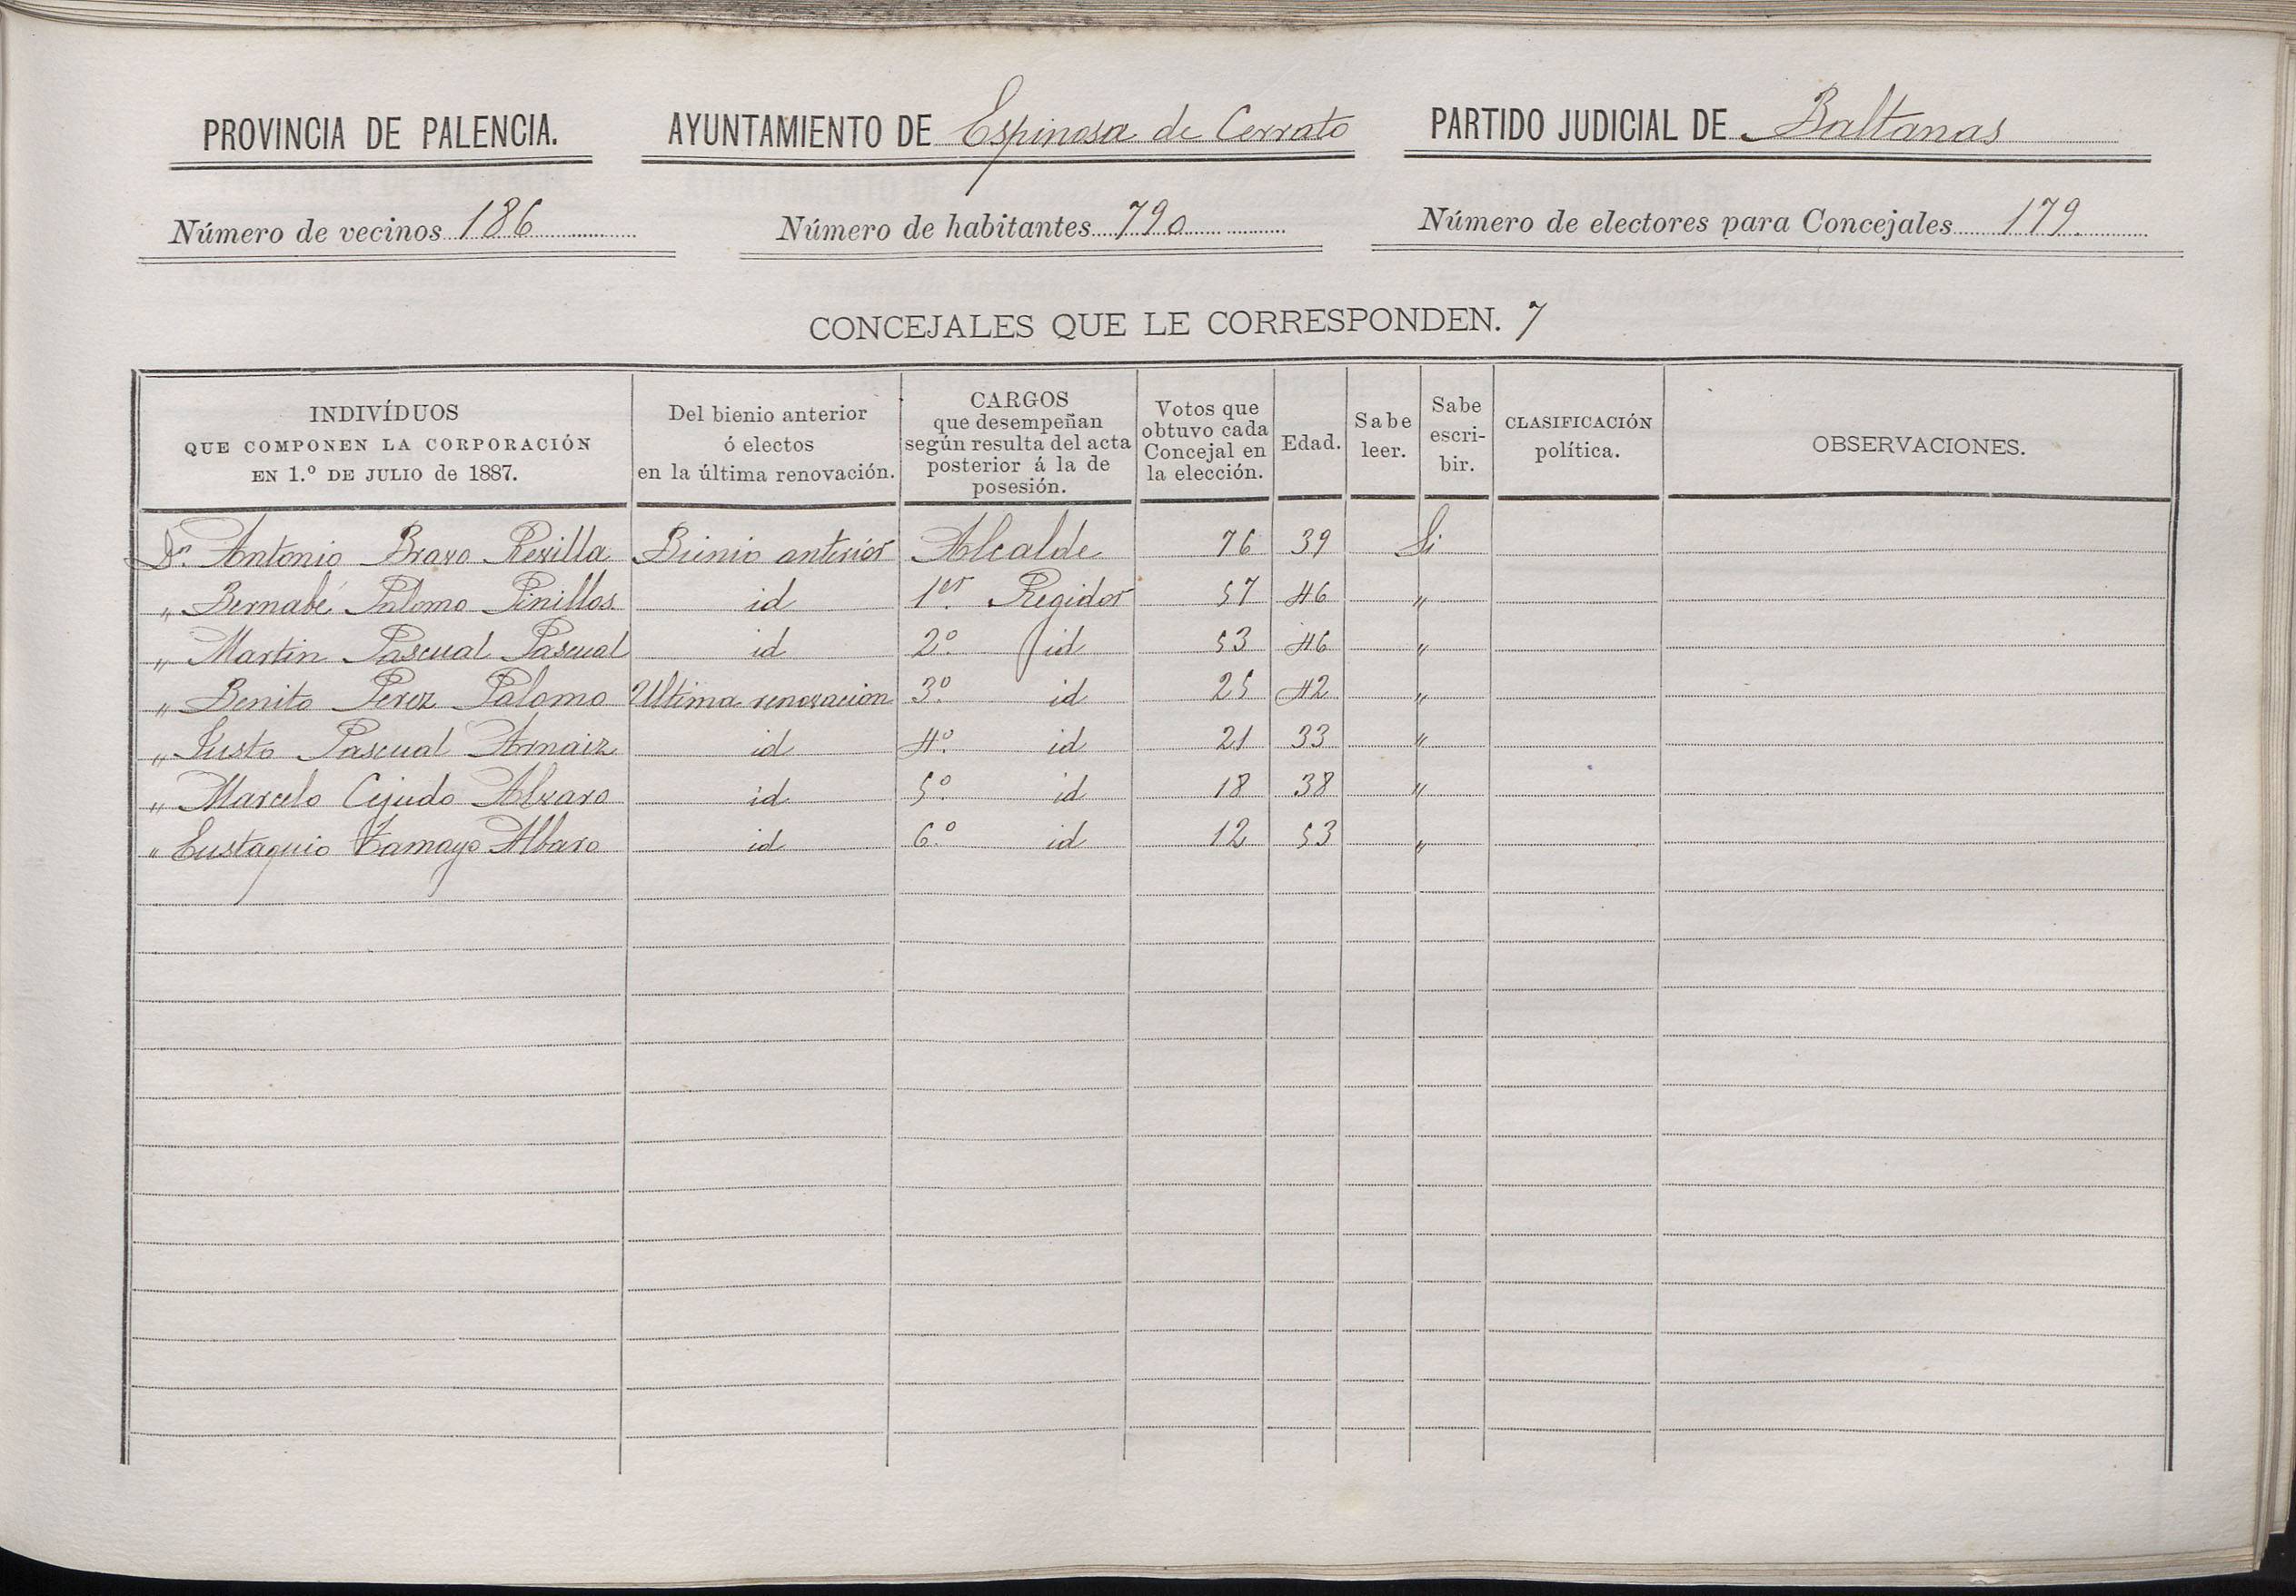 PROVINCIA DE PALENCIA. AYUNTAMIENTO DE Espinosa de Cerrato PARTIDO JUDICIAL DE Baltanas
Número de vecinos 186 Número de habitantes 790 Número de electores para Concejales 179.
CONCEJALES QUE LE CORRESPONDEN. 7
INDIVÍDUOS
QUE COMPONEN LA CORPORACIÓN
EN 1.º DE JULIO de 1887.
Del bienio anterior
ó electos
en la última renovación.
CARGOS
que desempeñan
según resulta del acta
posterior á la de
posesión.
Votos que
obtuvo cada
Concejal en
la elección.
Edad.
Sabe
leer.
Sabe
escri-
bir.
CLASIFICACIÓN
política.
OBSERVACIONES.
Dn. Antonio Bravo Revilla Bienio anterior Alcalde 76 39 Si
" Bernabé Palomo Pinillos id 1er. Regidor 57 46 "
" Martin Pascual Pascual id 2º. id 53 46 "
" Benito Perez Palomo Ultima renovacion 3º. id 25 42 "
" Justo Pascual Arnaiz id 4º. id 21 33 "
" Marcelo Cejudo Alvaro id 5º. id 18 38 "
" Eustaquio Tamayo Albaro id 6º. id 12 53 "